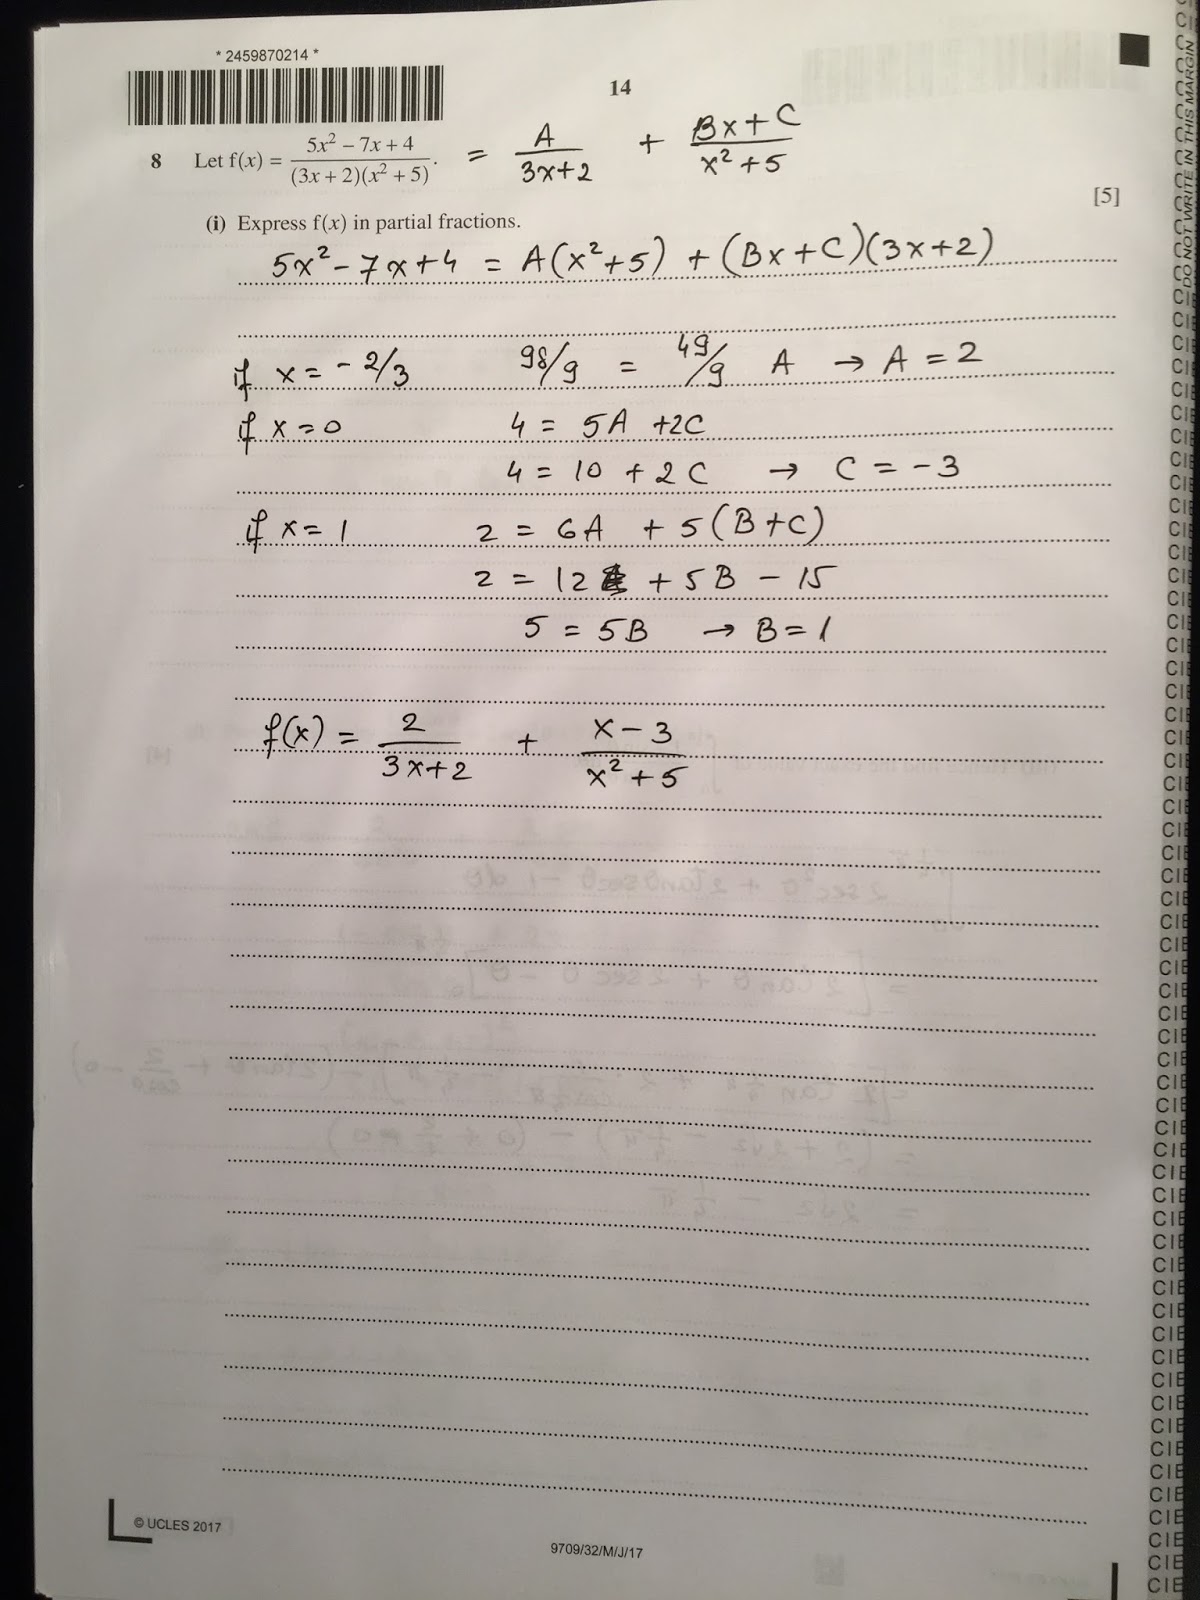 * 2459870214 *
14
8 Let f(x) = (5x² − 7x + 4)/((3x + 2)(x² + 5)). = A/(3x+2) + (Bx+C)/(x²+5)
[5]
(i) Express f(x) in partial fractions.
5x² − 7x + 4 = A(x²+5) + (Bx+C)(3x+2)
if x = −2/3 98/9 = 49/9 A → A = 2
if x = 0 4 = 5A + 2C
4 = 10 + 2C → C = −3
if x = 1 2 = 6A + 5(B+C)
2 = 12 + 5B − 15
5 = 5B → B = 1
f(x) = 2/(3x+2) + (x−3)/(x²+5)
© UCLES 2017
9709/32/M/J/17
DO NOT WRITE IN THIS MARGIN